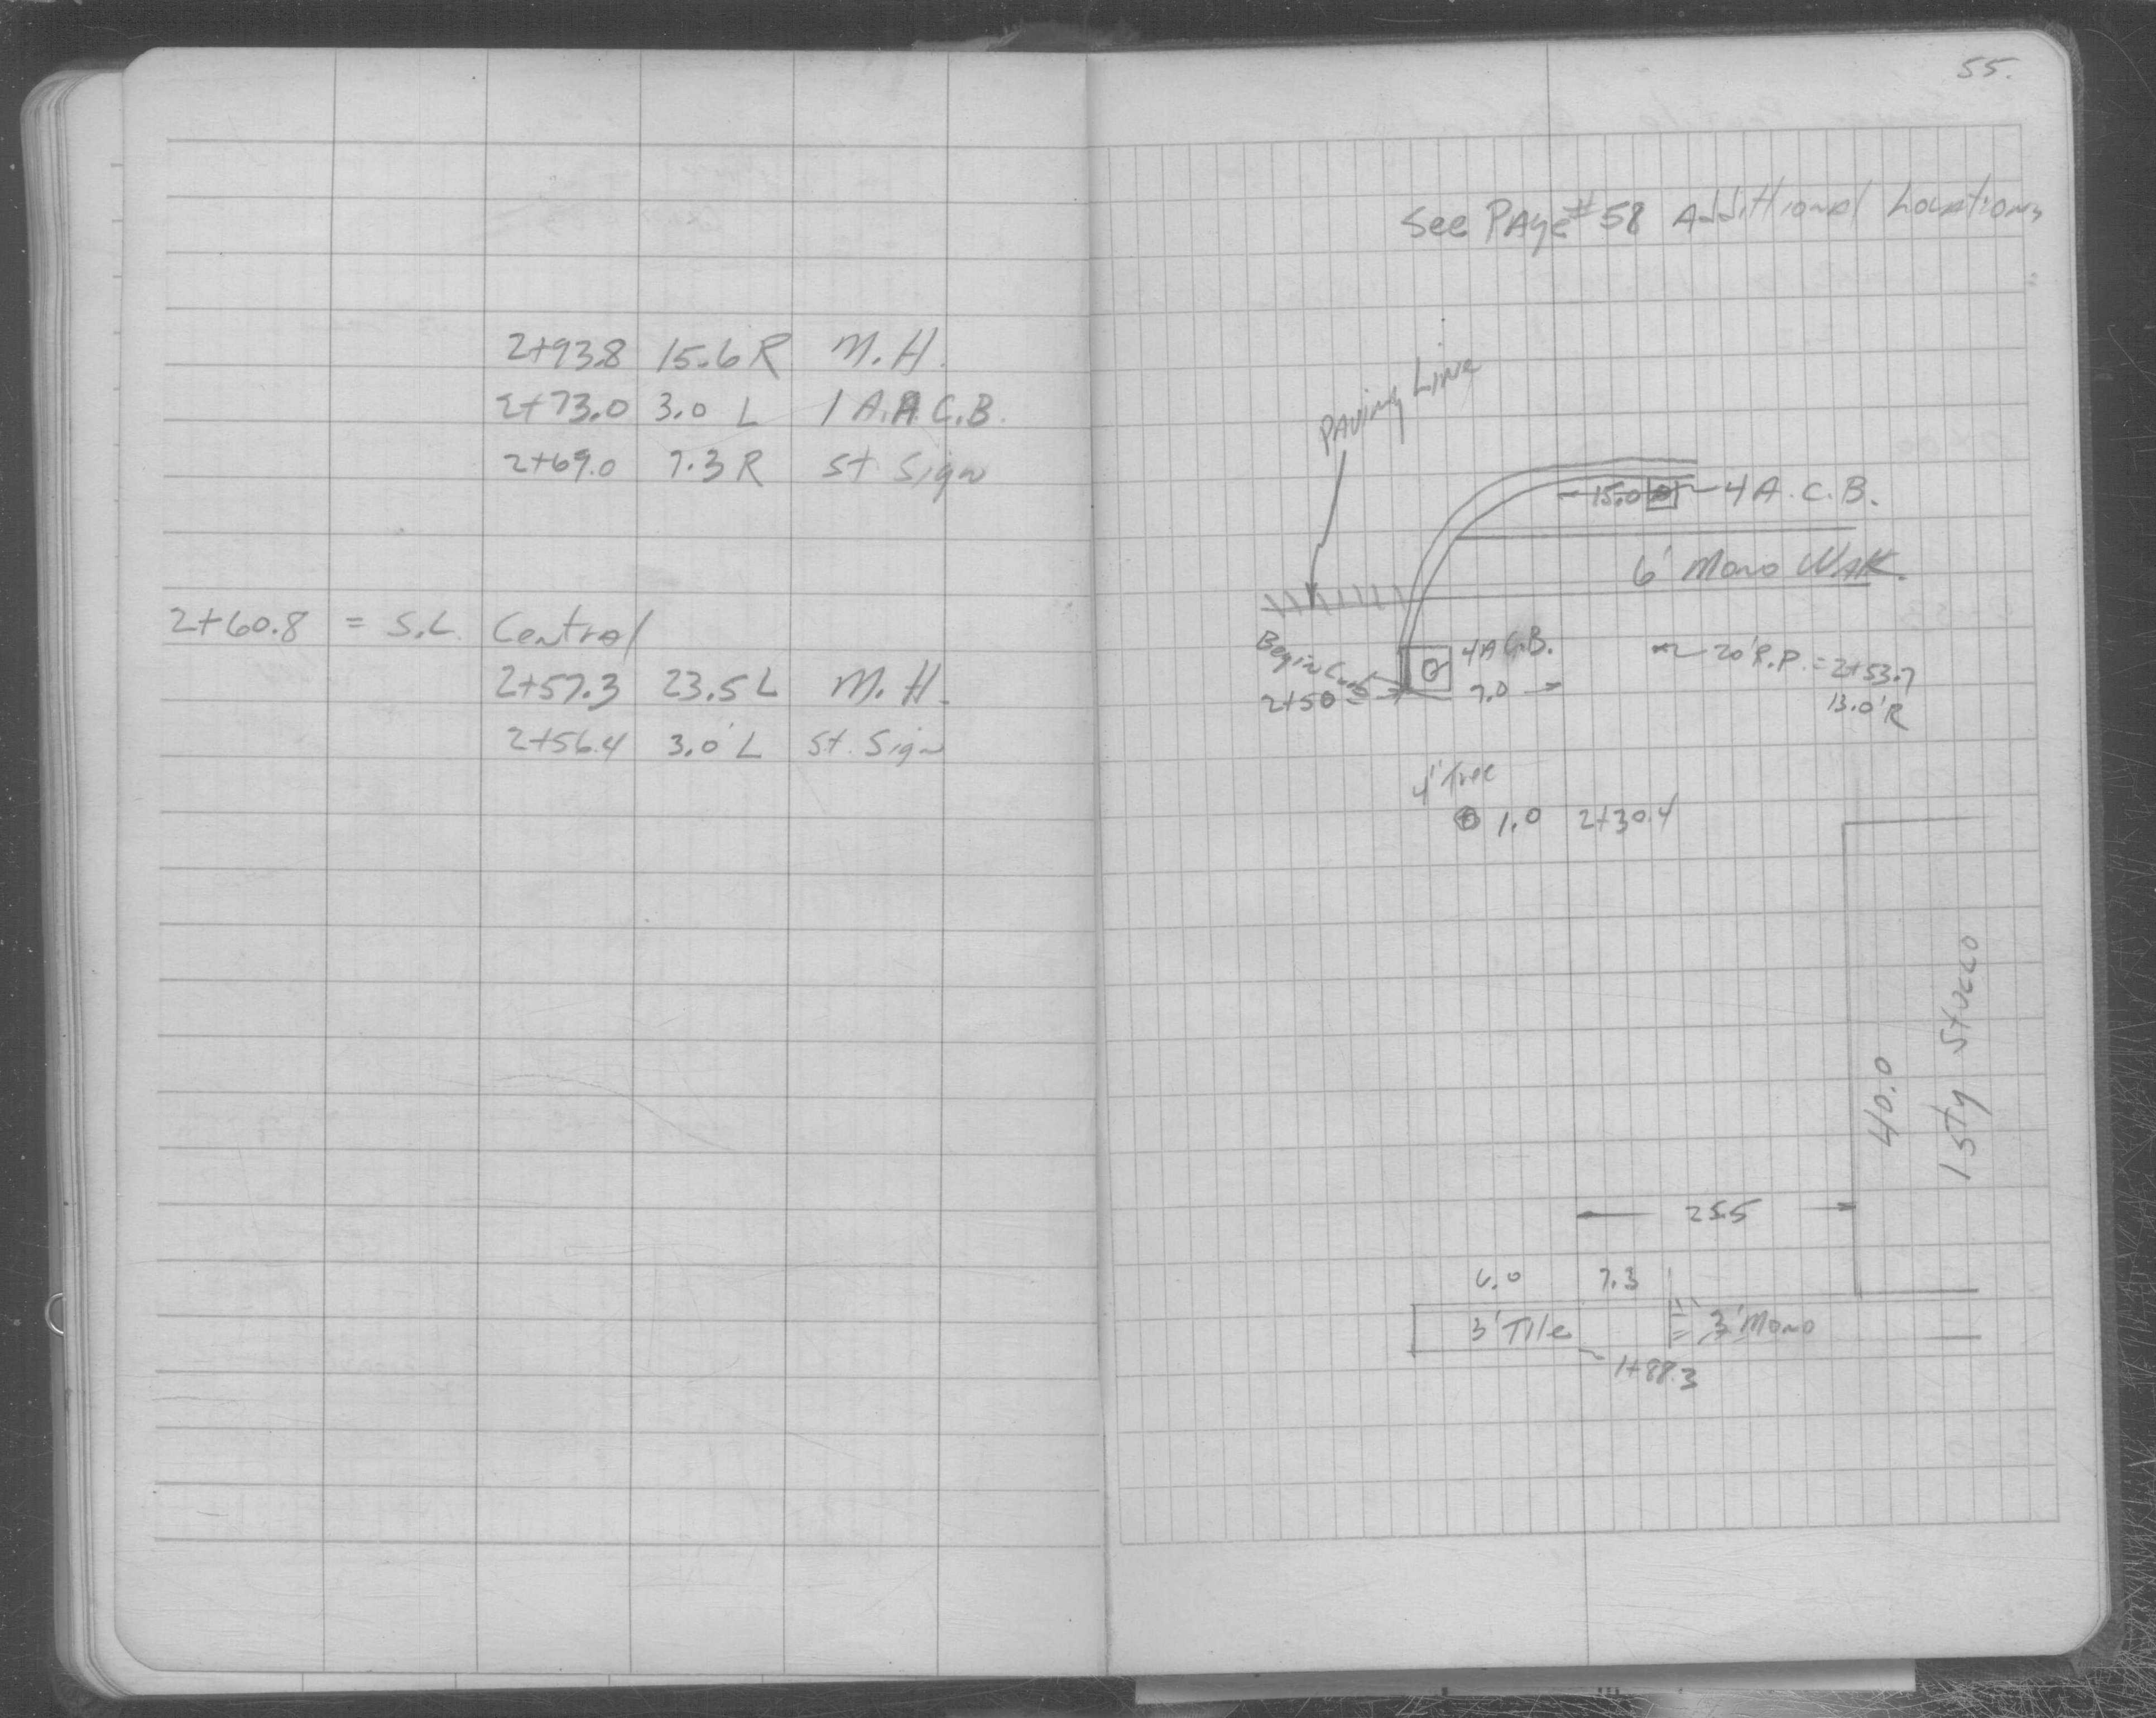 2+93.8 15.6 R M.H.
2+73.0 3.0 L 1 A.A.C.B.
2+69.0 7.3 R St Sign
2+60.8 = S.L. Central
2+57.3 23.5 L M.H.
2+56.4 3.0' L St. Sign
55.
See PAge #58 Additional Locations
PAving Line
15.0 4 A.C.B.
6' Mono Walk.
Begin Curb
2+50
4 A C.B.
7.0
20' R.P. = 2+53.7
13.0' R
4" Tree
1.0 2+30.4
40.0
1 Sty Stucco
25.5
6.0 7.3
3' Tile
3' Mono
1+88.3